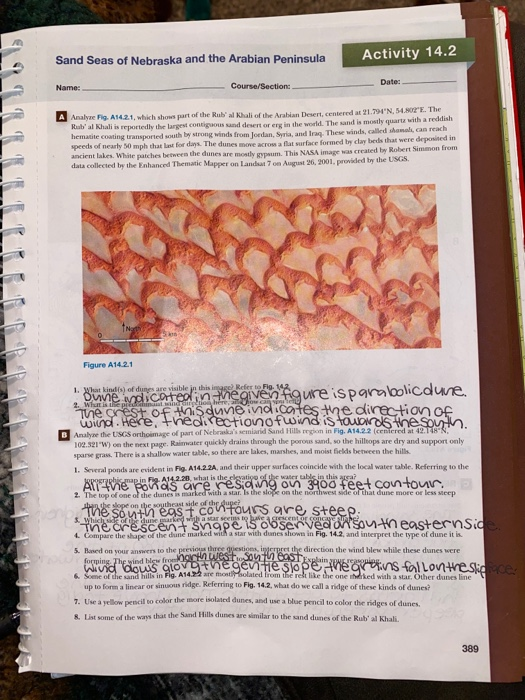 Sand Seas of Nebraska and the Arabian Peninsula
Activity 14.2
Name:
Course/Section:
Date:
A Analyze Fig. A14.2.1, which shows part of the Rub' al Khali of the Arabian Desert, centered at 21.794°N, 54.802°E. The
Rub' al Khali is reportedly the largest contiguous sand desert or erg in the world. The sand is mostly quartz with a reddish
hematite coating transported south by strong winds from Jordan, Syria, and Iraq. These winds, called shamals, can reach
speeds of nearly 50 mph that last for days. The dunes move across a flat surface formed by clay beds that were deposited in
ancient lakes. White patches between the dunes are mostly gypsum. This NASA image was created by Robert Simmon from
data collected by the Enhanced Thematic Mapper on Landsat 7 on August 26, 2001, provided by the USGS.
North
0 5 km
Figure A14.2.1
1. What kind(s) of dunes are visible in this image? Refer to Fig. 14.2.
Dune indicated in the given figure is parabolic dune.
2. What is the predominant wind direction here, and
The crest of this dune indicates the direction of
wind. Here, the direction of wind is towards the south.
B Analyze the USGS orthoimage of part of Nebraska's semiarid Sand Hills region in Fig. A14.2.2 (centered at 42.148°N,
102.321°W) on the next page. Rainwater quickly drains through the porous sand, so the hilltops are dry and support only
sparse grass. There is a shallow water table, so there are lakes, marshes, and moist fields between the hills.
1. Several ponds are evident in Fig. A14.2.2A, and their upper surfaces coincide with the local water table. Referring to the
topographic map in Fig. A14.2.2B, what is the elevation of the water table in this area?
All the ponds are residing on 3900 feet contour.
2. The top of one of the dunes is marked with a star. Is the slope on the northwest side of that dune more or less steep
than the slope on the southeast side of the dune?
The south east contours are steep.
3. Which side of the dune marked with a star seems to have a crescent or concave shape?
The crescent shape is observed on southeastern side
4. Compare the shape of the dune marked with a star with dunes shown in Fig. 14.2, and interpret the type of dune it is.
5. Based on your answers to the previous three questions, interpret the direction the wind blew while these dunes were
forming. The wind blew from northwest to south east. Explain your reasoning.
Wind blows along the gentle slope, the grains fall on the slipface
6. Some of the sand hills in Fig. A14.2.2 are mostly isolated from the rest like the one marked with a star. Other dunes line
up to form a linear or sinuous ridge. Referring to Fig. 14.2, what do we call a ridge of these kinds of dunes?
7. Use a yellow pencil to color the more isolated dunes, and use a blue pencil to color the ridges of dunes.
8. List some of the ways that the Sand Hills dunes are similar to the sand dunes of the Rub' al Khali.
389